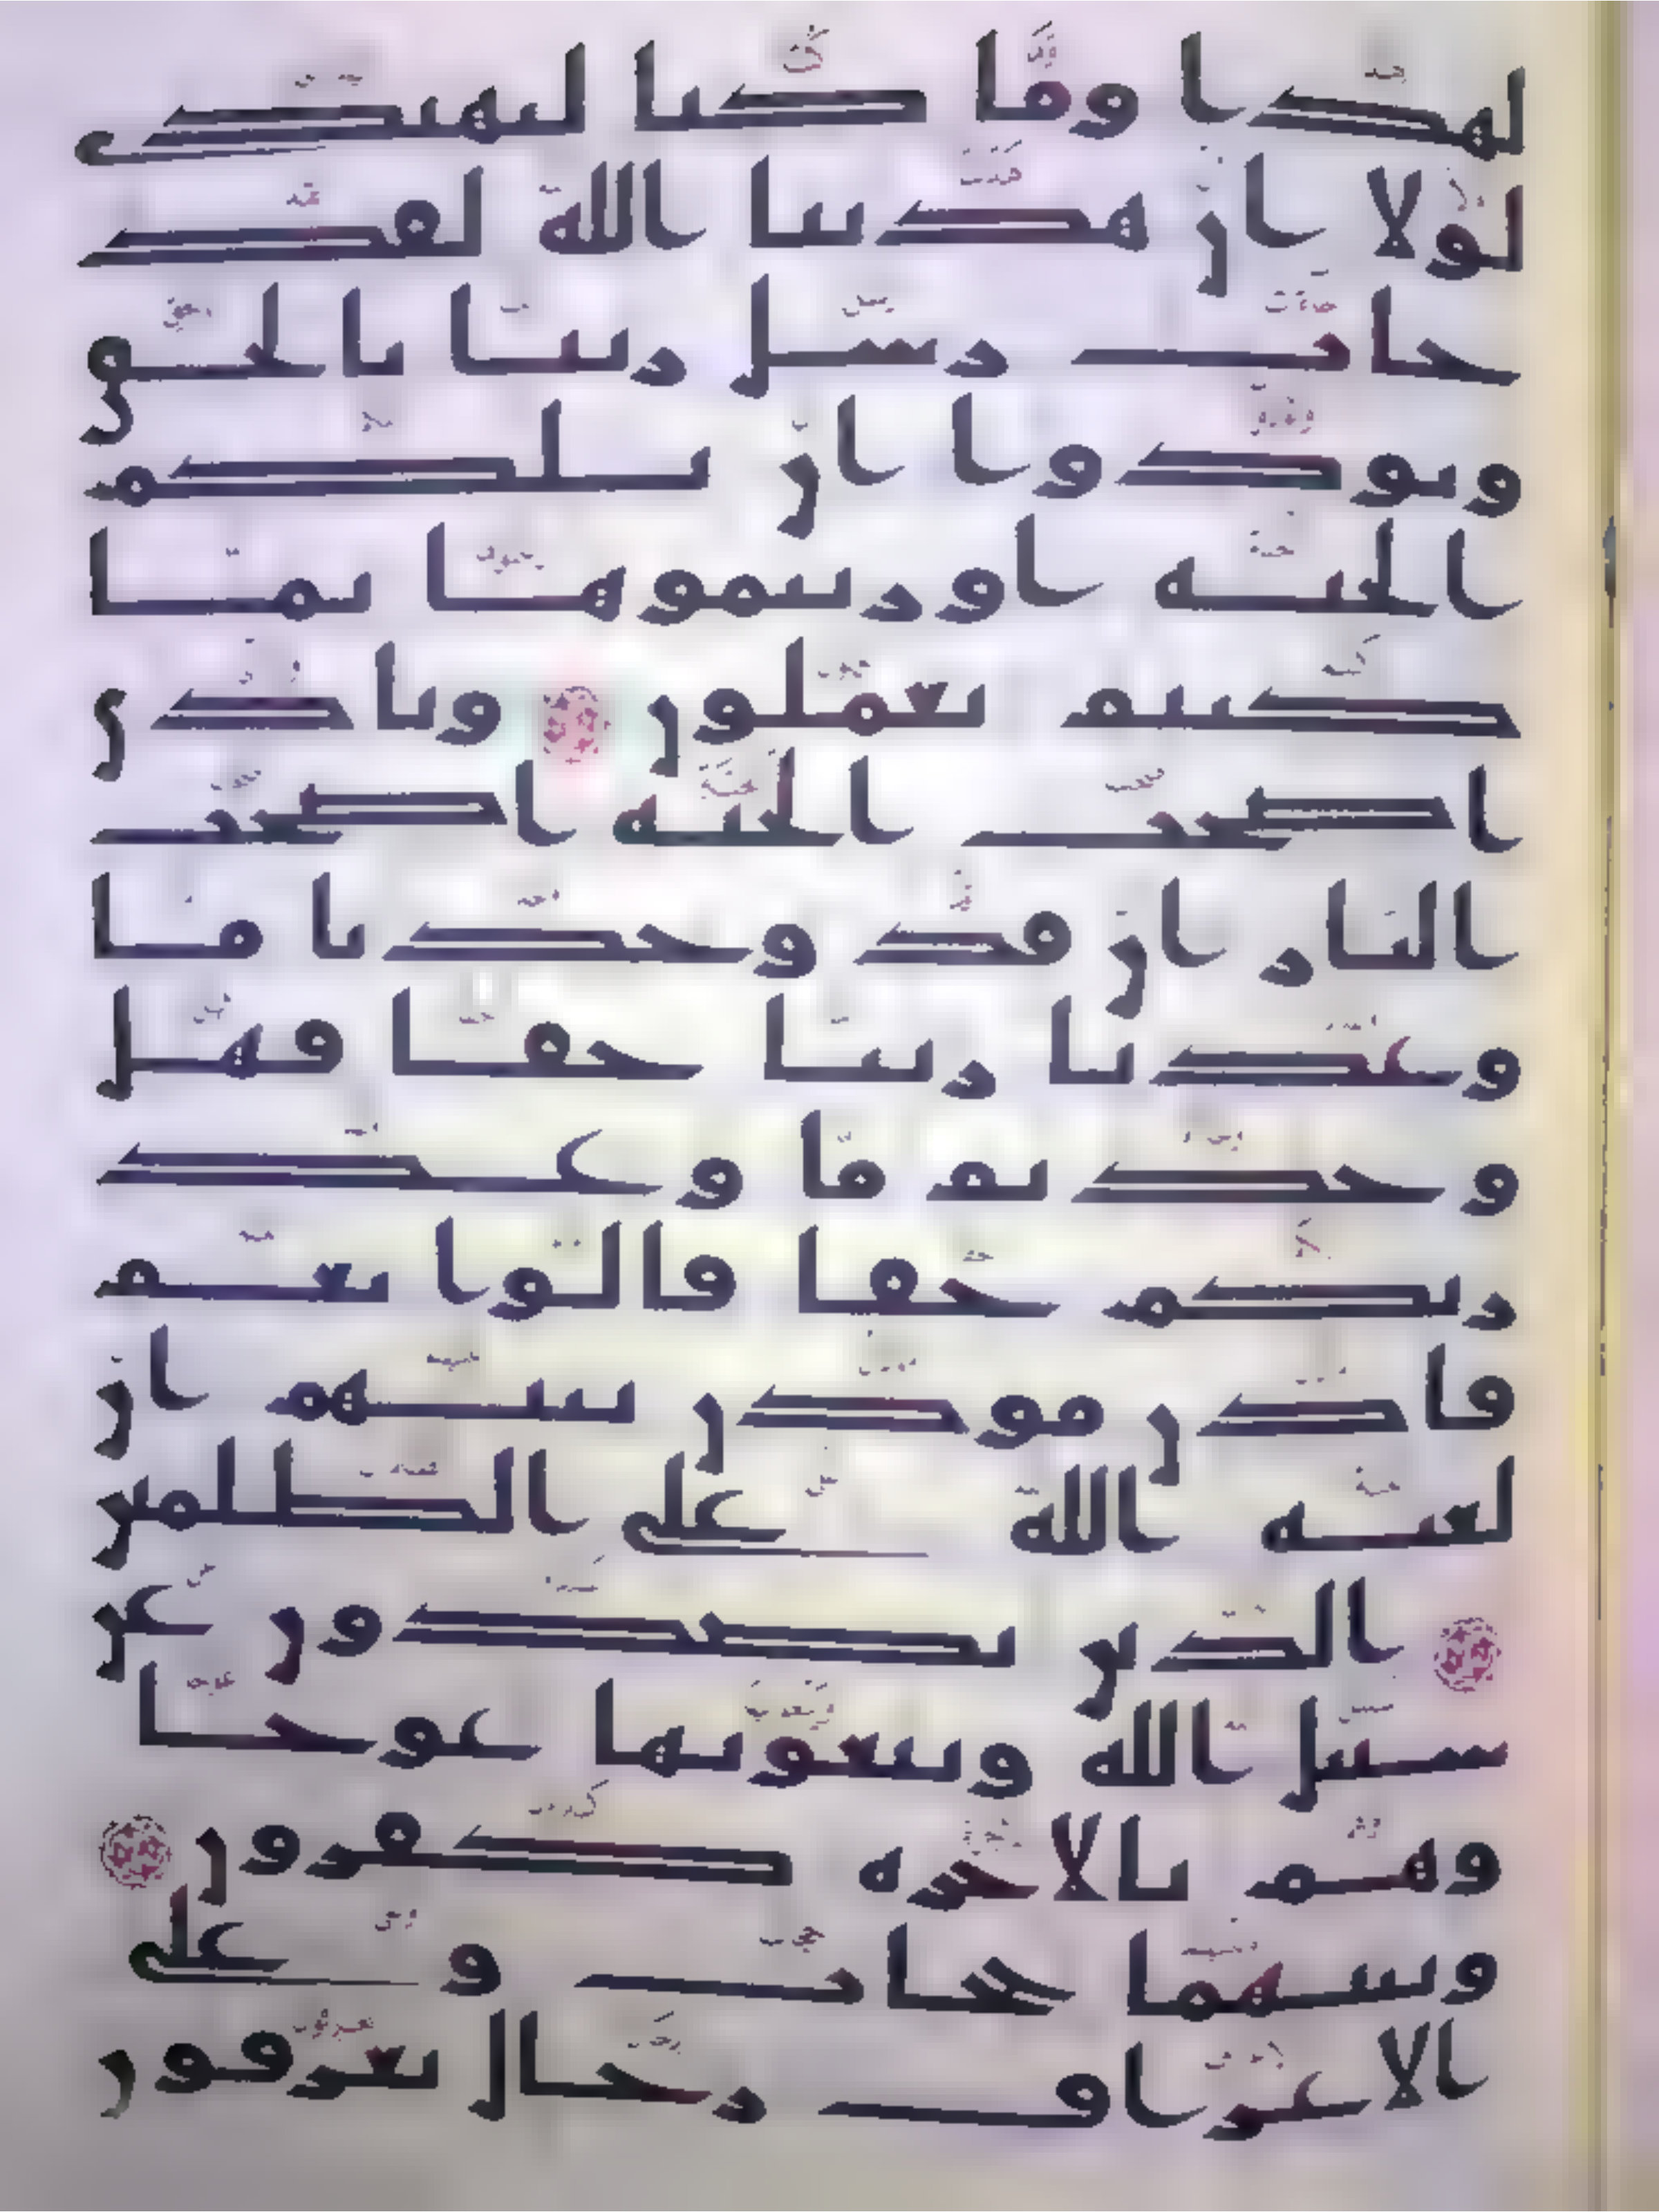 لهذا وما كنا لنهتدي
لولا ان هدينا الله لقد
جات رسل ربنا بالحق
ونودوا ان تلكم
الجنه اورثتموها بما
كنتم تعملون ونادى
اصحب الجنه اصحب
النار ان قد وجدنا ما
وعدنا ربنا حقا فهل
وجدتم ما وعد
ربكم حقا قالوا نعم
فاذن موذن بينهم ان
لعنه الله على الظلمين
الذين يصدون عن
سبيل الله ويبغونها عوجا
وهم بالاخره كفرون
وبينهما حجاب وعلى
الاعراف رجال يعرفون